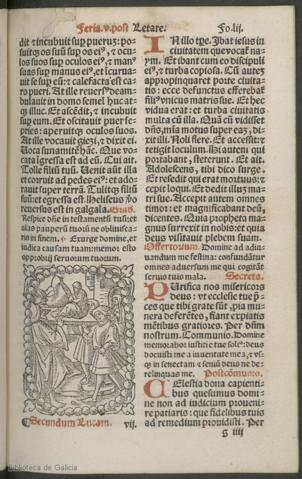 Feria.v.post Letare. Fo.lij.
dit ⁊ incubuit sup puerũ: po-
suitqꝫ os suũ sup os eiꝰ, ⁊ ocu-
los suos sup oculos eiꝰ, ⁊ ma-
nus suas
sup manus eiꝰ, et
se sup eũ: ⁊ calefacta est ca-
ro pueri. At ille reuersꝰ deam-
bulauit in domo semel huc at-
qꝫ illuc. Et ascẽdit, ⁊ incubuit
sup eum. Et oscitauit puer
pries: aperuitqꝫ oculos suos.
At ille vocauit giezi, ⁊ dixit ei.
Uoca sunamitẽ hãc. Que vo-
cata ĩgressa est ad eũ. Cui ait.
Tolle filiũ tuũ. Uenit aũt illa
et corruit ad pedes eiꝰ: et ado-
rauit super terrã. Tulitqꝫ filiũ
suũ: et egressa est. Heliseus
reuersus est in galgala.
Respice dñe in testamentũ tuũ: et
aĩas pauperũ tuorũ ne obliuisca-
ris in finem. Exurge domine, et
iudica causam tuam: memor esto
opprobrij seruorum tuorum.
Secundum Lucam. vij.
IN illo tpe. Ibat iesus in
ciuitatem que vocat̃ na-
ym. Et ibant cum eo discipuli
eiꝰ, ⁊ turba copiosa. Cũ autẽ
appropinquaret porte ciuita-
tis: ecce defunctus efferebat̃
filiꝰ vnicus matris sue. Et hec
vidua erat: et turba ciuitatis
multa cũ illa. Quã cũ vidisset
dñs, mĩa motus super eaʒ, di-
xit illi. Noli flere. Et accessit: ⁊
tetigit loculum. Hi autem qui
portabant, steterunt. Et ait.
Adolescens, tibi dico surge.
Et resedit qui erat mortuus: ⁊
cepit loqui. Et dedit illuʒ ma-
tri sue. Accepit autem omnes
timor: et magnificabant deũ,
dicentes. Quia propheta ma-
gnus surrexit in nobis: et quia
deus visitauit plebem suam.
Offertorium. Domine ad adiu-
uandum me festina: confundãtur
omnes aduersum me qui cogitãt
seruis tuis mala. Secreta.
PUrifica nos misericors
deus: vt ecclesie tue p̃-
ces que tibi grate sũt, pia mu-
nera deferẽtes, fiant expiatis
mẽtibus gratiores. Per dñm
nostrum. Communio. Domine
memorabor iusticie tue soliꝰ: deus
docuisti me a iuuentute mea, ⁊ vs-
qꝫ in senectam ⁊ seniũ deus ne de-
relinquas me. Postcõmunio.
CElestia dona capienti-
bus quesumus domi-
ne non ad iudicium proueni-
re patiaris: que fidelibus tuis
ad remedium prouidisti. Per
g iiij
Biblioteca de Galicia